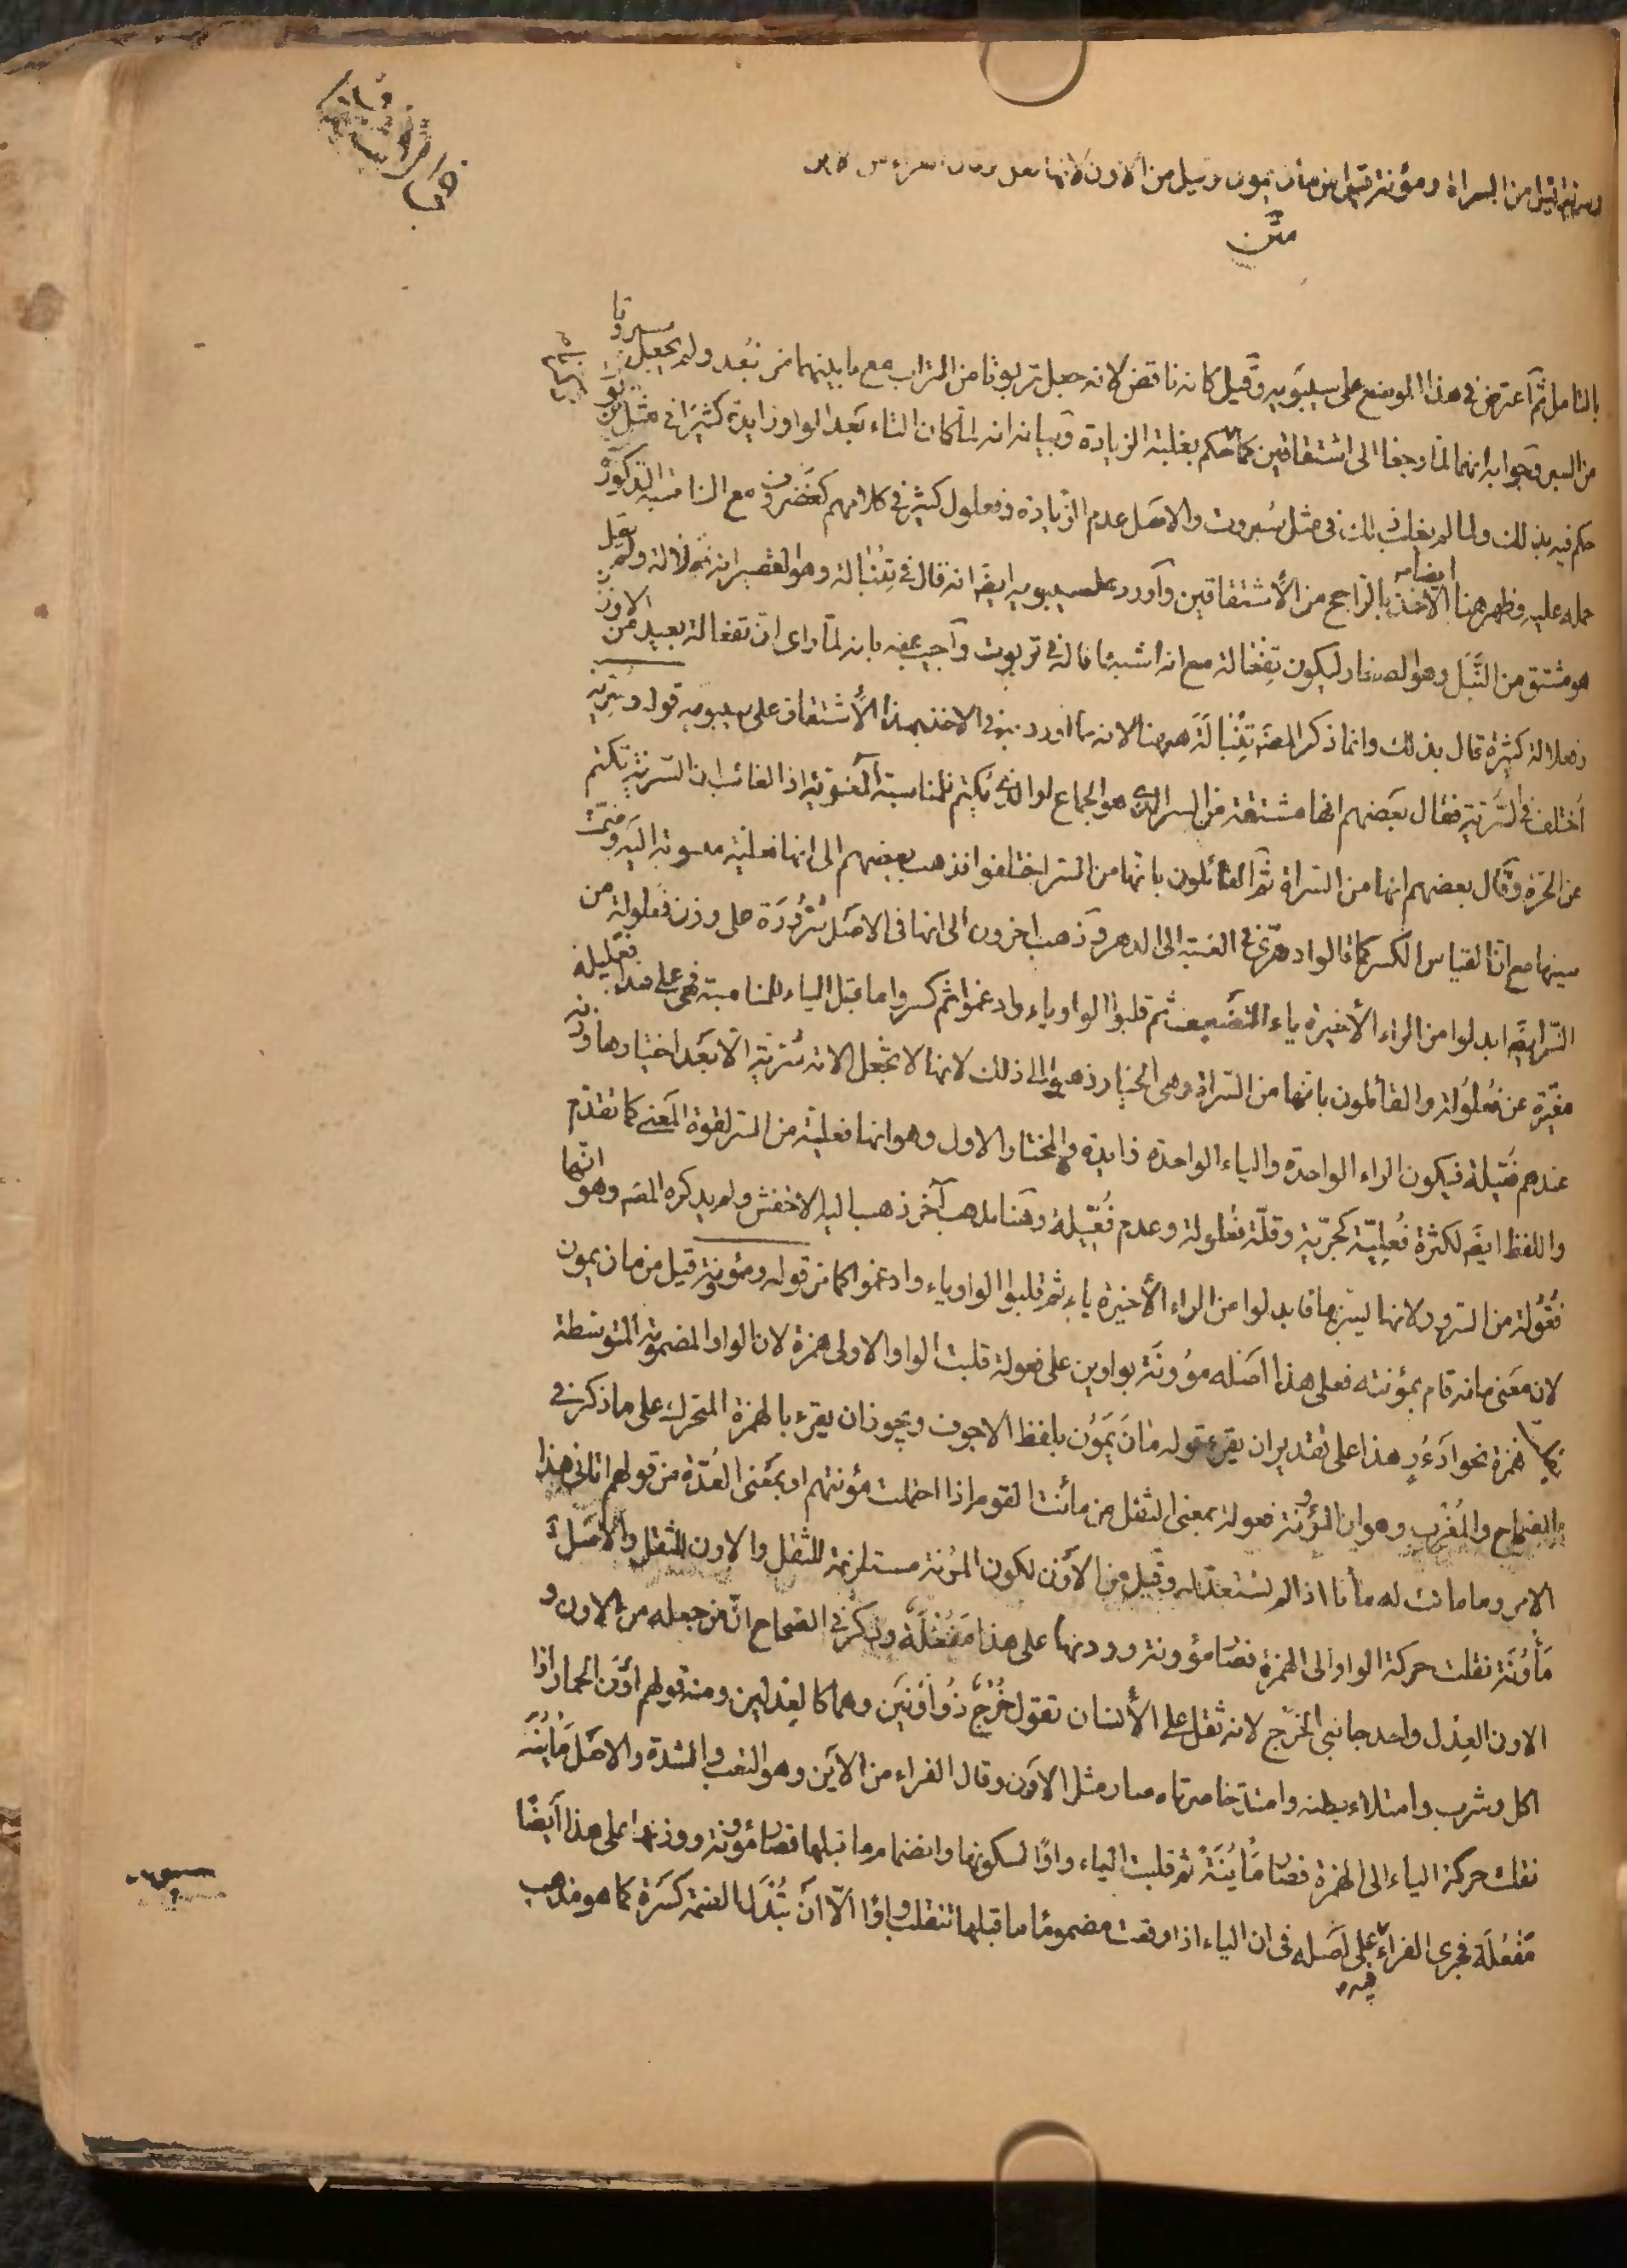 وسرية قيل من السراة ومؤنة قيل من مان يمون وقيل من الاون لانها
متن
بالتامل ثم اعترض فى هذا الموضع على سيبويه وقيل كانه ناقض لانه جعل تربوتا من التراب مع ما بينهما من بعد ولم يجعل سبروتا
من السبر وجوابه انهما لما رجعا الى اشتقاقين كما حكم بغلبة الزيادة وبيانه انه لما كان التاء بعد الواو زايدة كثيرا فى مثل
حكم فيه بذلك ولما لم يغلب ذلك فى مثل سبروت والاصل عدم الزيادة وفعلول كثير فى كلامهم كغضروف مع المناسبة المذكورة
حمله عليه وظهر هنا ايضا الاخذ بالراجح من الاشتقاقين واورد على سيبويه ايضا انه قال فى تنبالة وهو القصير انه فعلالة ولم يقل
هو مشتق من النبل وهو الصغار ليكون تفعالة مع انه اشبه بما قاله فى تربوت واجيب عنه بانه لما راى ان تفعالة بعيد من الاوزان
وفعلالة كثيرة قال بذلك وانما ذكر المصنف تنبالة ههنا لانه مما اورد فى الاخذ بهذا الاشتقاق على سيبويه قوله وسرية
اختلف فى السرية فقال بعضهم انها مشتقة من السر الذى هو الجماع او الذى يكتم للمناسبة المعنوية اذ الغالب ان السرية تكتم
عن الحرة وقال بعضهم انها من السراة ثم القائلون بانها من السر اختلفوا فذهب بعضهم الى انها فعلية منسوبة اليه وضمت
سينها مع ان القياس الكسر كما قالوا دهرى فى النسبة الى الدهر وذهب اخرون الى انها فى الاصل سرورة على وزن فعلولة من
السر ايضا ابدلوا من الراء الاخيرة ياء للتضعيف ثم قلبوا الواو ياء وادغموا ثم كسروا ما قبل الياء للمناسبة فهى على هذا فعليلة
مغيرة عن فعلولة والقائلون بانها من السراة وهى الخيار ذهبوا الى ذلك لانها لا تجعل الامة سرية الا بعد اختيارها وزنه
عندهم فعيلة فيكون الراء الواحدة والياء الواحدة زايدة والمختار الاول وهو انها فعلية من السر لقوة المعنى كما تقدم
واللفظ ايضا لكثرة فعلية كحرية وقلة فعلولة وعدم فعيلة وهنا مذهب آخر ذهب اليه الاخفش ولم يذكره المصنف وهو انها
فعولة من السرور لانها يسر بها فابدلوا من الراء الاخيرة ياء ثم قلبوا الواو ياء وادغموا كما مر قوله ومؤنة قيل من مان يمون
لان معنى مانه قام بمؤنته فعلى هذا اصله موونة بواوين على فعولة قلبت الواو الاولى همزة لان الواو المضمومة المتوسطة
همزة نحو ادؤر هذا على تقدير ان يقرء قوله مان يمون بلفظ الاجوف ويجوز ان يقرء بالهمزة المتحركة على ما ذكر فى
الصحاح والمغرب وهو ان المؤنة فعولة بمعنى الثقل من مأنت القوم اذا احتملت مؤنتهم او بمعنى العدة من قولهم اتانى هذا
الامر وما مانت له مأنا اذا لم تستعد له وقيل من الاون لكون المؤنة مستلزمة للثقل والاون الثقل والاصل
مأونة نقلت حركة الواو الى الهمزة فصار مؤونة ووزنها على هذا مفعلة وذكر فى الصحاح ان من جعله من الاون و
الاون العدل واحد جانبى الخرج لانه ثقل على الانسان تقول خرج ذو اونين وهما كالعدلين ومنه قولهم اون الحمار اذا
اكل وشرب وامتلاء بطنه وامتد خاصرتاه صار مثل الاون وقال الفراء من الاين وهو التعب والشدة والاصل مأينة
نقلت حركة الياء الى الهمزة فصار مأينة ثم قلبت الياء واوا لسكونها وانضمام ما قبلها فصار مؤونة ووزنها على هذا ايضا
مفعلة فجرى الفراء على اصله فى ان الياء اذا وقعت مضموما ما قبلها تنقلب واوا الا ان تبدل الضمة كسرة كما هو مذهب